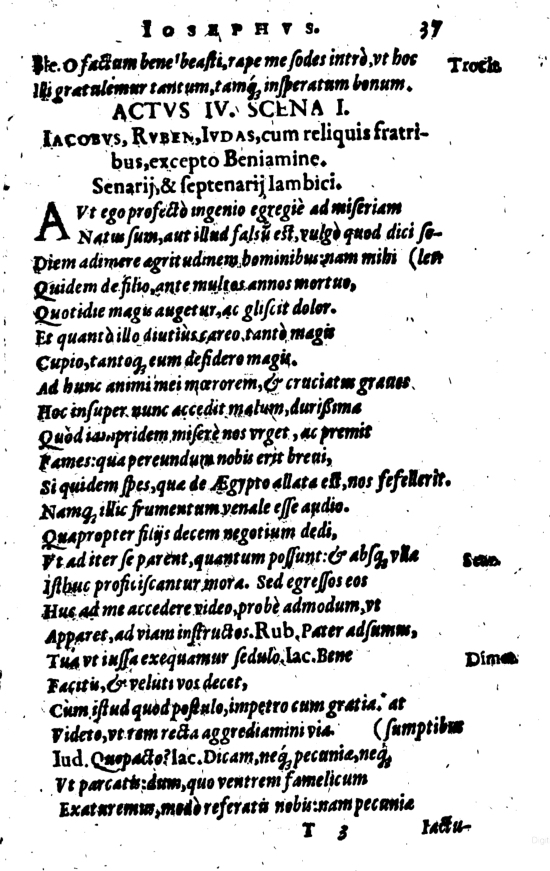 IOSEPHVS. 37
Ple. O factum bene! beasti, rape me sodes intrò, vt hoc Trocla.
Illi gratulemur tantum, tamq́; insperatum bonum.
ACTVS IV. SCENA I.
IACOBVS, RVBEN, IVDAS, cum reliquis fratri-
bus, excepto Beniamine.
Senarij, & septenarij Iambici.
AVt ego profectò ingenio egregiè ad miseriam
Natus sum, aut illud falsũ est, vulgò quod dici so-
Diem adimere agritudinem hominibus: nam mihi (let
Quidem de filio, ante multos annos mortuo,
Quotidie magis augetur, ac gliscit dolor.
Et quantò illo diutiùs careo, tantò magis
Cupio, tantoq; eum desidero magis.
Ad hunc animi mei mœrorem, & cruciatus graues
Hoc insuper nunc accedit malum, durißima
Quòd iampridem miserè nos vrget, ac premit
Fames: qua pereundum nobis erit breui,
Si quidem spes, qua de Ægypto allata est, nos fefellerit.
Namq; illic frumentum venale esse audio.
Quapropter filijs decem negotium dedi,
Vt ad iter se parent, quantum possunt: & absq; vlla Senar.
Isthuc proficiscantur mora. Sed egressos eos
Huc ad me accedere video, probè admodum, vt
Apparet, ad viam instructos. Rub. Pater adsumus,
Tua vt iussa exequamur sedulo. Iac. Bene Dimet.
Facitis, & veluti vos decet,
Cum istud quod postulo, impetro cum gratia. at
Videte, vt rem recta aggrediamini via. (sumptibus
Iud. Quo pacto? Iac. Dicam, neq́; pecunia, neq́;
Vt parcatis: dum, quo ventrem famelicum
Exaturemus, modò referatis nobis: nam pecunia
T 3 Iactu-